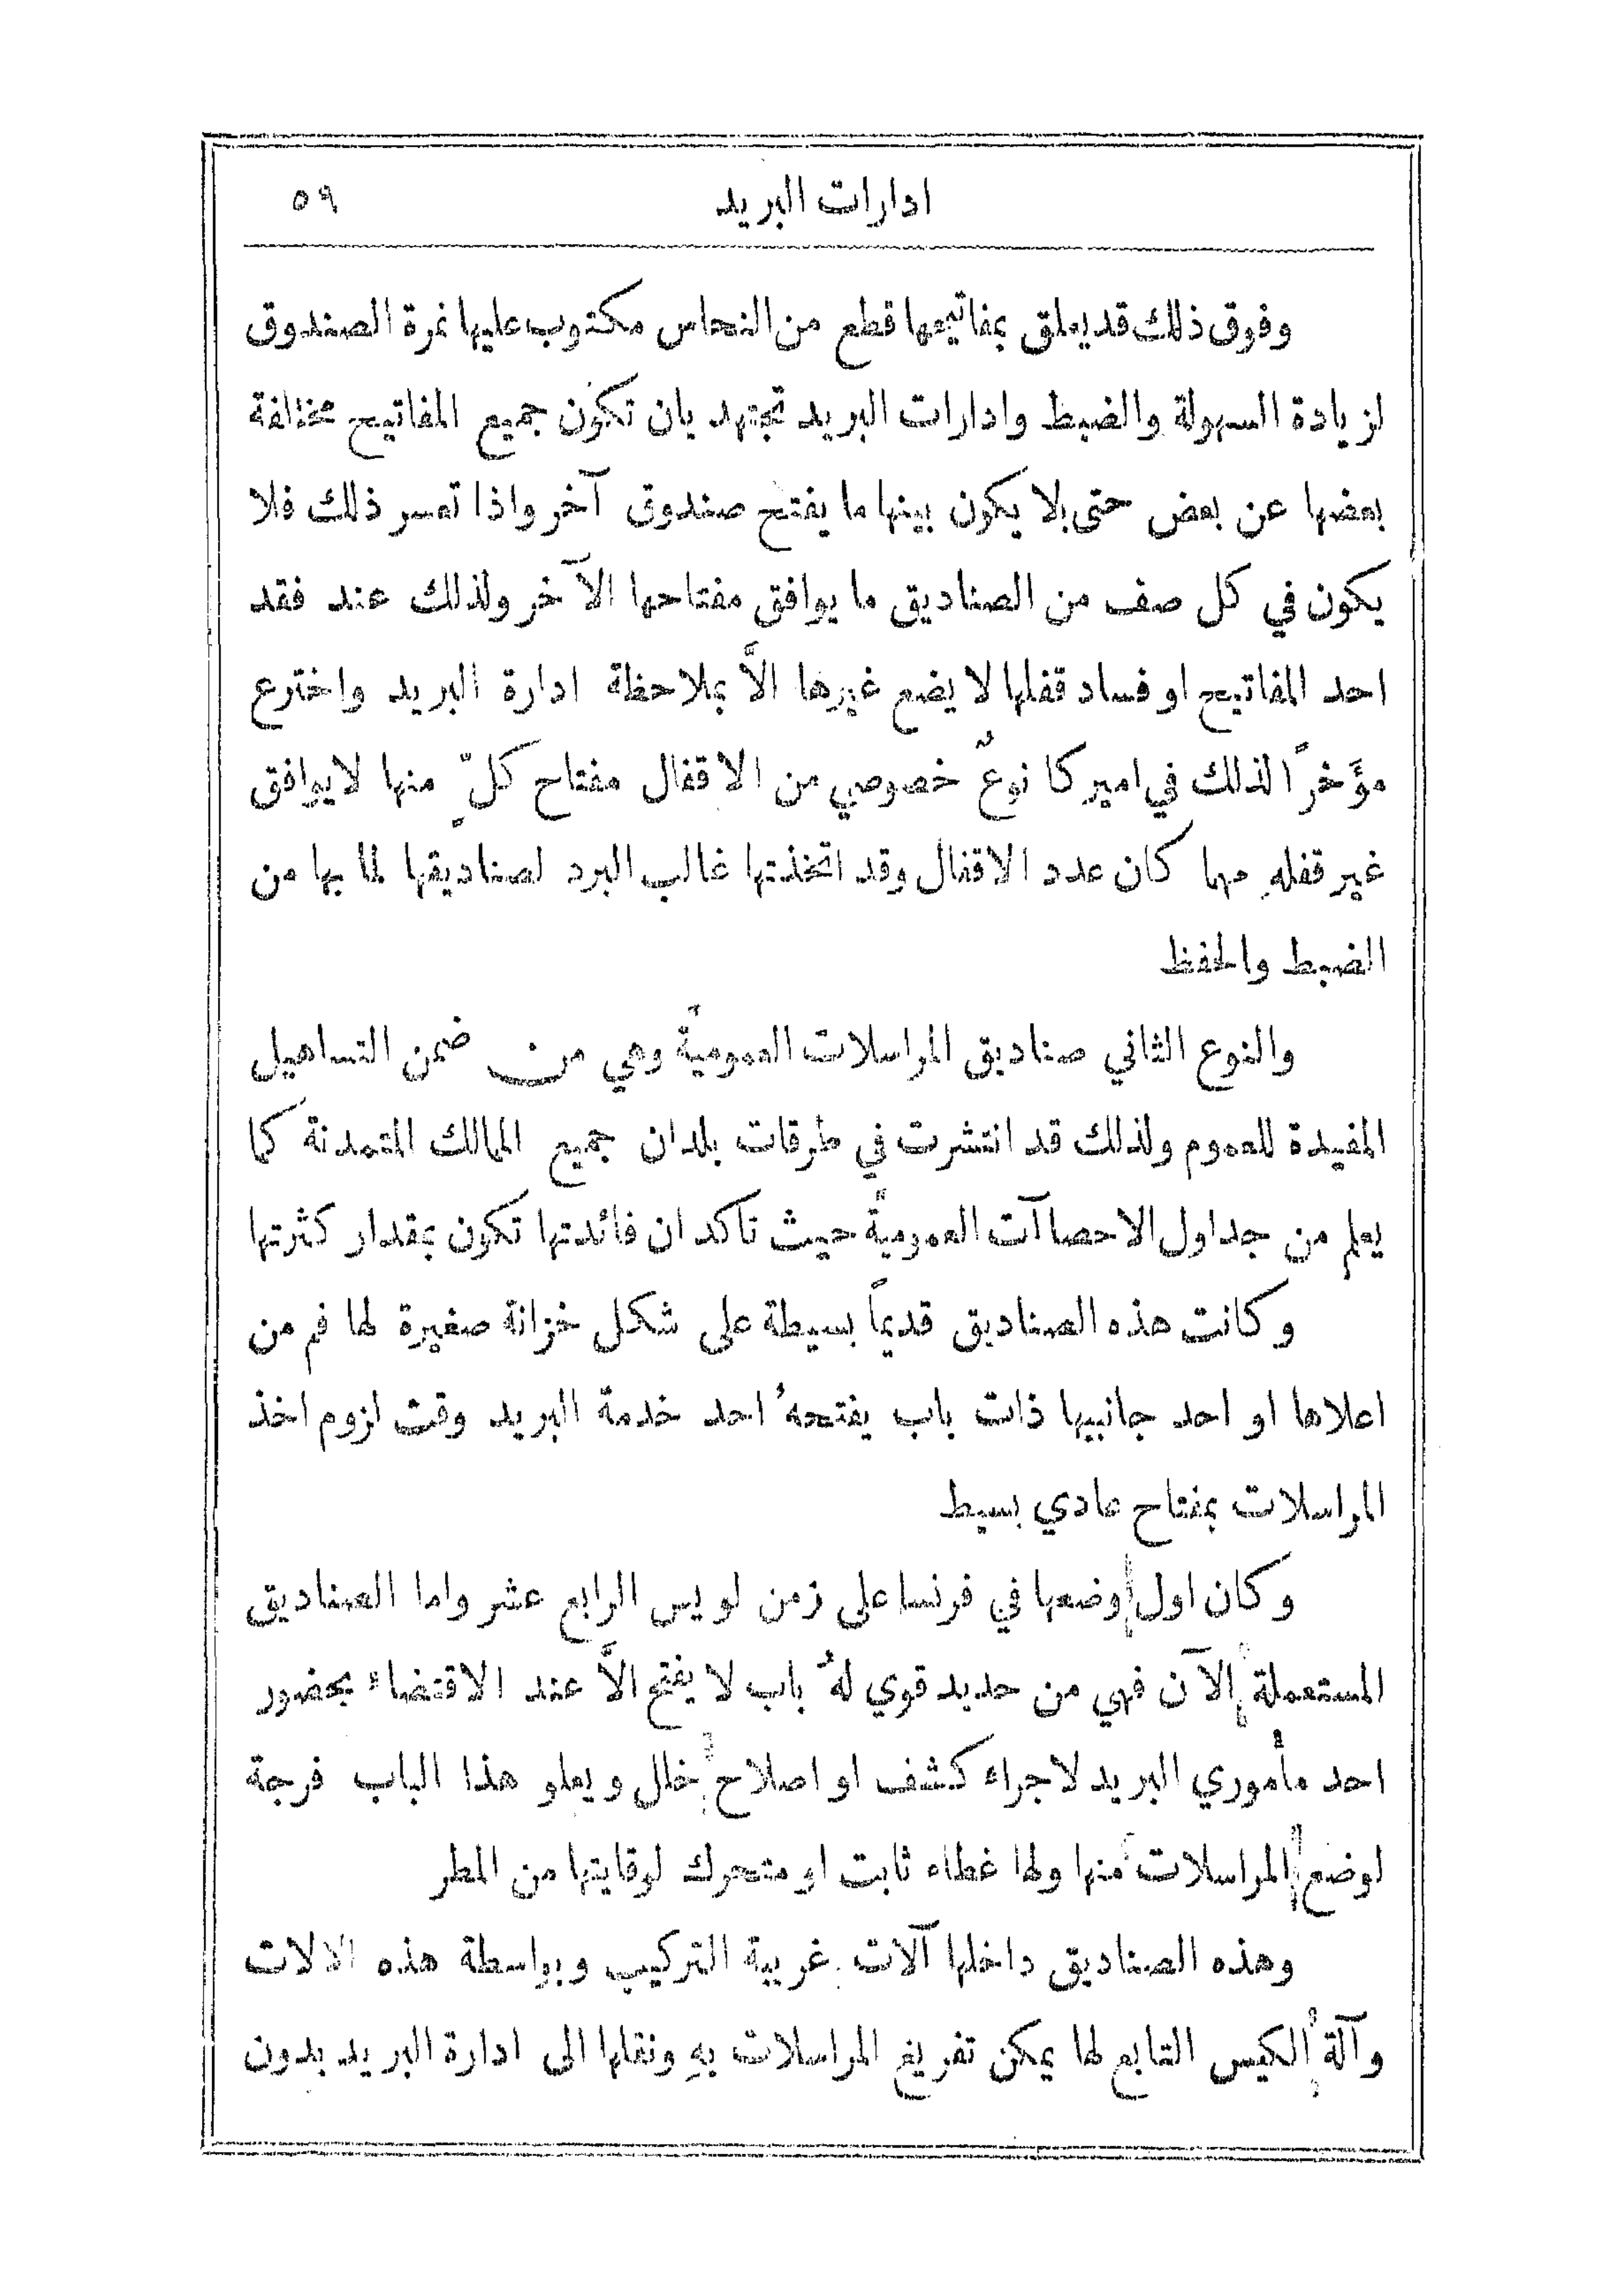 ادارات البريد ٥٩
وفوق ذلك قد يعلق بمفاتيحها قطع من النحاس مكتوب عليها نمرة الصندوق
لزيادة السهولة والضبط وادارات البريد تجتهد بان تكون جميع المفاتيح مختلفة
بعضها عن بعض حتى لا يكون بينها ما يفتح صندوق آخر واذا تعسر ذلك فلا
يكون في كل صف من الصناديق ما يوافق مفتاحها الآخر ولذلك عند فقد
احد المفاتيح او فساد قفلها لا يضع غيرها الاَّ بملاحظة ادارة البريد واخترع
مؤَخراً لذلك في اميركا نوعٌ خصوصي من الاقفال مفتاح كلٍّ منها لا يوافق
غير قفلهِ مهما كان عدد الاقفال وقد اتخذتها غالب البرد لصناديقها لما بها من
الضبط والحفظ
والنوع الثاني صناديق المراسلات العموميَّة وهي من ضمن التساهيل
المفيدة للعموم ولذلك قد انتشرت في طرقات بلدان جميع الممالك المتمدنة كما
يعلم من جداول الاحصاآت العموميَّة حيث تاكد ان فائدتها تكون بمقدار كثرتها
وكانت هذه الصناديق قديماً بسيطة على شكل خزانة صغيرة لها فم من
اعلاها او احد جانبيها ذات باب يفتحهُ احد خدمة البريد وقت لزوم اخذ
المراسلات بمفتاح عادي بسيط
وكان اول وضعها في فرنسا على زمن لويس الرابع عشر واما الصناديق
المستعملة الآن فهي من حديد قوي لهُ باب لا يفتح الاَّ عند الاقتضاء بحضور
احد مأموري البريد لاجراء كشف او اصلاح خلل ويعلو هذا الباب فرجة
لوضع المراسلات منها ولها غطاء ثابت او متحرك لوقايتها من المطر
وهذه الصناديق داخلها آلات غريبة التركيب وبواسطة هذه الالات
وآلة الكيس التابع لها يمكن تفريغ المراسلات بهِ ونقلها الى ادارة البريد بدون